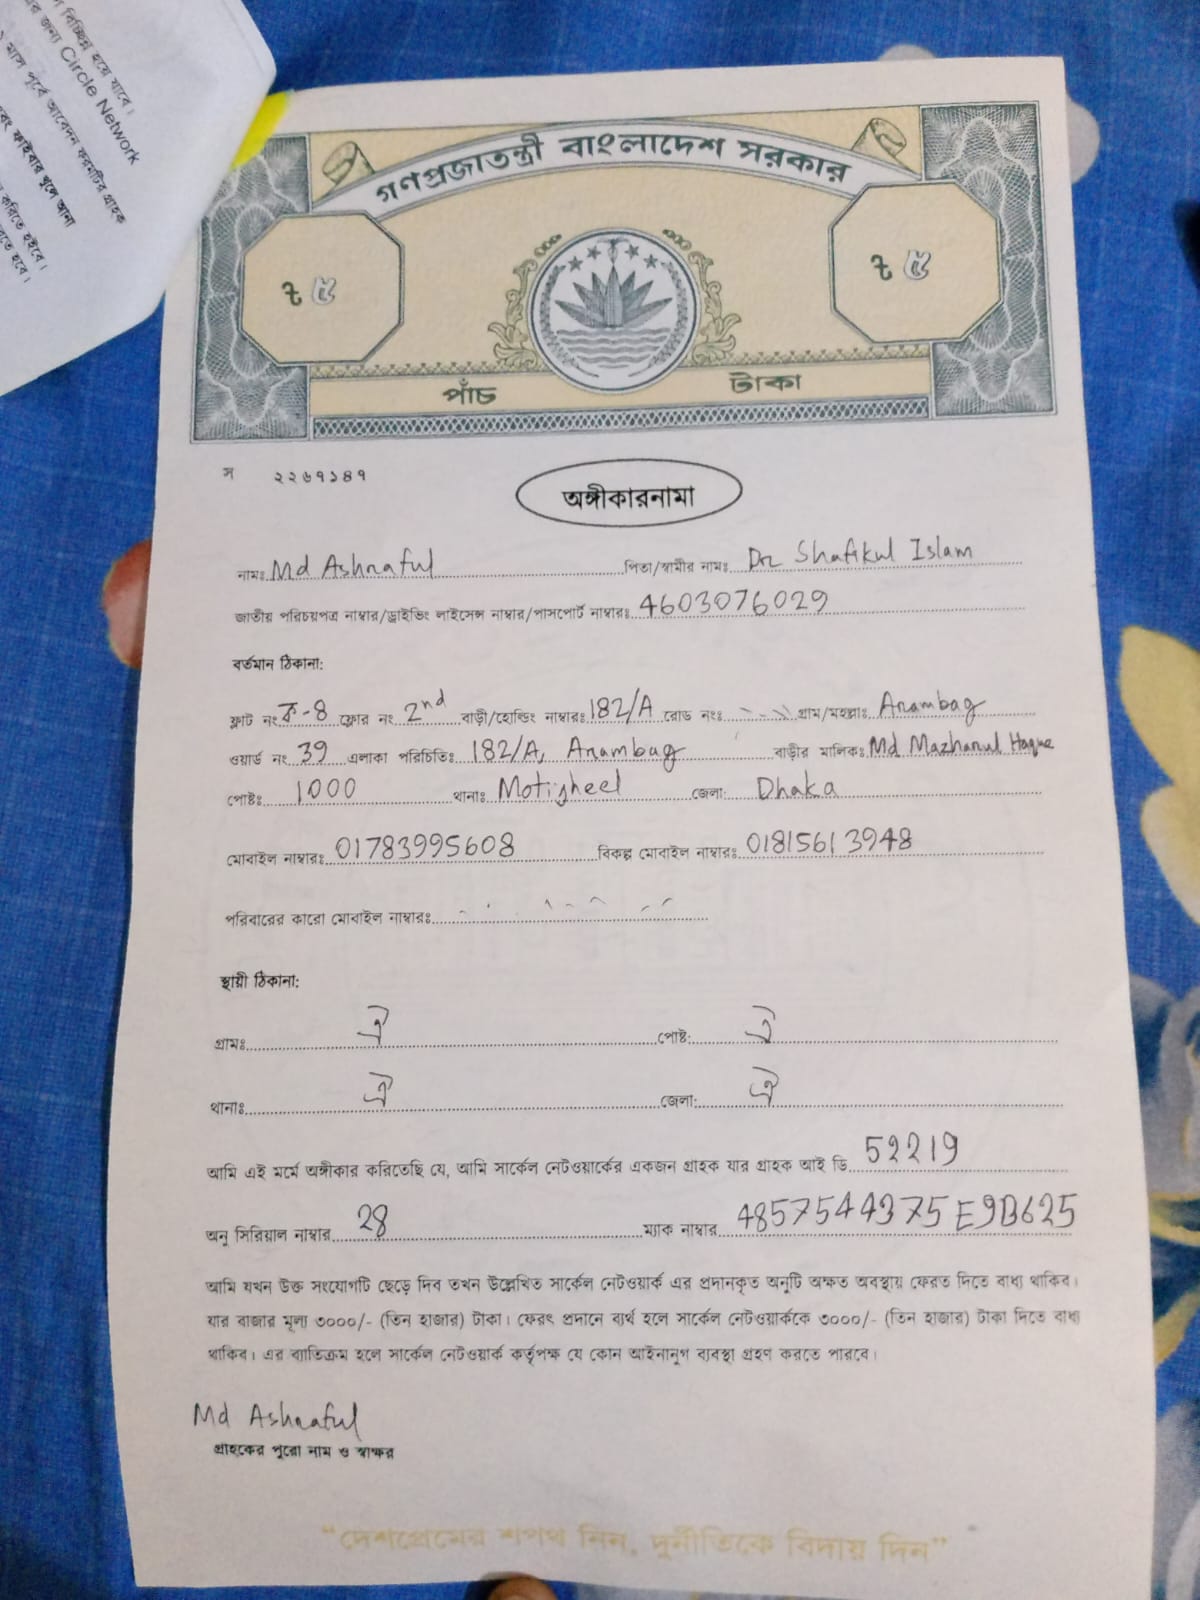 বিচ্ছিন্ন হয়ে যাবে।
জন্য Circle Network
মাস পূর্বে আবেদন ফরমটির গ্রাহক
ফাইবার খুলে আনা
করিতে হইবে।
হবে।
গণপ্রজাতন্ত্রী বাংলাদেশ সরকার
৳ ৫ ৳ ৫
পাঁচ টাকা
স ২২৬৭১৪৭
অঙ্গীকারনামা
নামঃ Md Ashraful পিতা/স্বামীর নামঃ Dr Shafikul Islam
জাতীয় পরিচয়পত্র নাম্বার/ড্রাইভিং লাইসেন্স নাম্বার/পাসপোর্ট নাম্বারঃ 4603076029
বর্তমান ঠিকানা:
ফ্লাট নং ক-8 ফ্লোর নং 2nd বাড়ী/হোল্ডিং নাম্বারঃ 182/A রোড নংঃ গ্রাম/মহল্লাঃ Arambag
ওয়ার্ড নং 39 এলাকা পরিচিতিঃ 182/A, Arambag বাড়ীর মালিকঃ Md Mazharul Haque
পোষ্টঃ 1000 থানাঃ Motijheel জেলা: Dhaka
মোবাইল নাম্বারঃ 01783995608 বিকল্প মোবাইল নাম্বারঃ 01815613948
পরিবারের কারো মোবাইল নাম্বারঃ
স্থায়ী ঠিকানা:
গ্রামঃ ঐ পোষ্ট: ঐ
থানাঃ ঐ জেলা: ঐ
আমি এই মর্মে অঙ্গীকার করিতেছি যে, আমি সার্কেল নেটওয়ার্কের একজন গ্রাহক যার গ্রাহক আই ডি 52219
অনু সিরিয়াল নাম্বার 28 ম্যাক নাম্বার 4857544375E9B625
আমি যখন উক্ত সংযোগটি ছেড়ে দিব তখন উল্লেখিত সার্কেল নেটওয়ার্ক এর প্রদানকৃত অনুটি অক্ষত অবস্থায় ফেরত দিতে বাধ্য থাকিব।
যার বাজার মূল্য ৩০০০/- (তিন হাজার) টাকা। ফেরৎ প্রদানে ব্যর্থ হলে সার্কেল নেটওয়ার্ককে ৩০০০/- (তিন হাজার) টাকা দিতে বাধ্য
থাকিব। এর ব্যতিক্রম হলে সার্কেল নেটওয়ার্ক কর্তৃপক্ষ যে কোন আইনানুগ ব্যবস্থা গ্রহণ করতে পারবে।
Md Ashraful
গ্রাহকের পুরো নাম ও স্বাক্ষর
"দেশপ্রেমের শপথ নিন, দুর্নীতিকে বিদায় দিন"